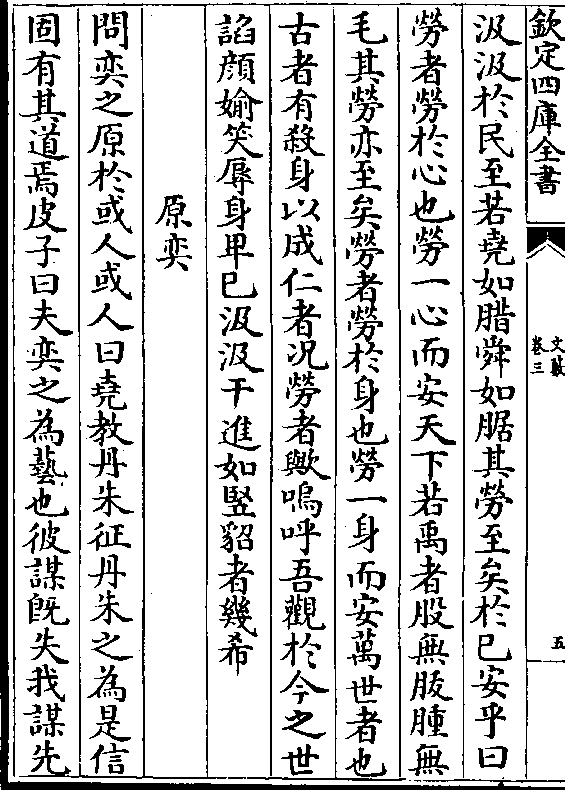 欽定四庫全書
文藪
卷三
五
汲汲於民至若堯如腊舜如腒其勞至矣於已安乎曰
勞者勞於心也勞一心而安天下若禹者股無胈腫無
毛其勞亦至矣勞者勞於身也勞一身而安萬世者也
古者有殺身以成仁者况勞者歟嗚呼吾觀於今之世
諂顔婾笑辱身卑已汲汲干進如竪貂者幾希
原奕
問奕之原於或人或人曰堯教丹朱征丹朱之為是信
固有其道焉皮子曰夫奕之為藝也彼謀旣失我謀先